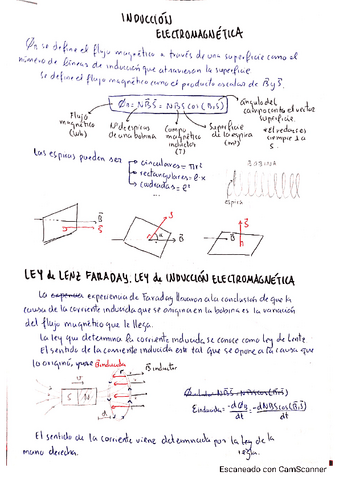 INDUCCIÓN
ELECTROMAGNÉTICA
Øn se define el flujo magnético a través de una superficie como el
número de líneas de inducción que atraviesan la superficie.
Se define el flujo magnético como el producto escalar de B y S.
Øn = N B S = N B S cos(B,S)
ángulo del
campo contra el vector
superficie.
Flujo
magnético
(Wb)
Nº de espiras
de una bobina
Campo
magnético
inductor
(T)
Superficie
de la espira
(m²)
*El vector es
siempre ⊥ a
S.
Las espiras pueden ser
circulares = πr²
rectangulares = l·x
cuadradas = l²
BOBINA
espira
B
S
S
α
B
S
B
LEY de LENZ FARADAY. LEY de INDUCCIÓN ELECTROMAGNÉTICA
La experiencia de Faraday llevaron a la conclusión de que la
causa de la corriente inducida que se origina en la bobina es la variación
del flujo magnético que le llega.
La ley que determina la corriente inducida se conoce como ley de Lente.
El sentido de la corriente inducida es tal que se opone a la causa que
la originó, pues
B inducida
B inductor
S N
Einducida = -dØB/dt = -dNBS cos(B,S)/dt
El sentido de la corriente viene determinada por la ley de la
mano derecha.
regla.
Escaneado con CamScanner